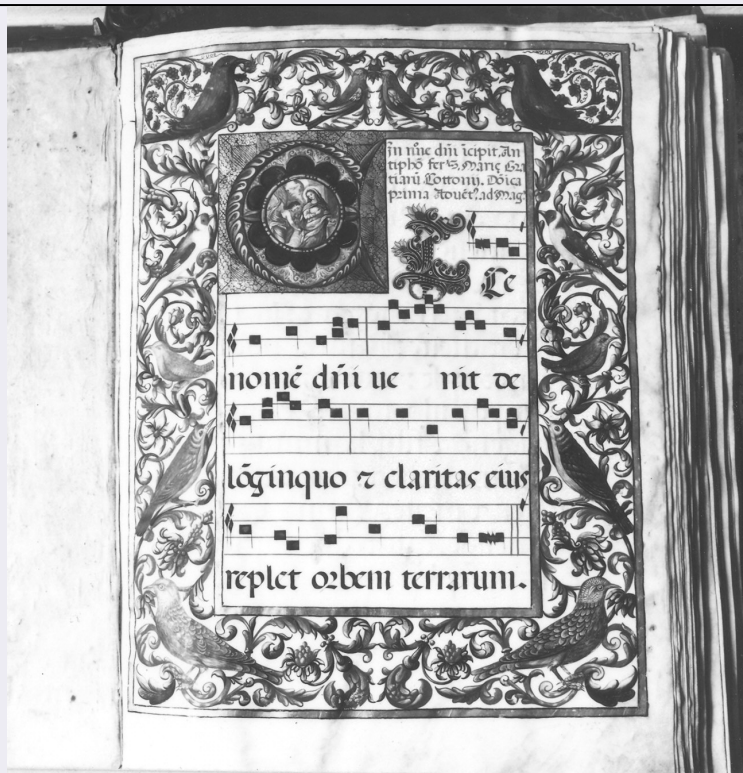 In nñe dñi icipit. An
tiphõ fer S. Marię Gra
tiani Cottonii. Dõica
prima Aduẽt. ad Mag.
E Cce
nomẽ dñi ue nit de
lõginquo ⁊ claritas eius
replet orbem terrarum.